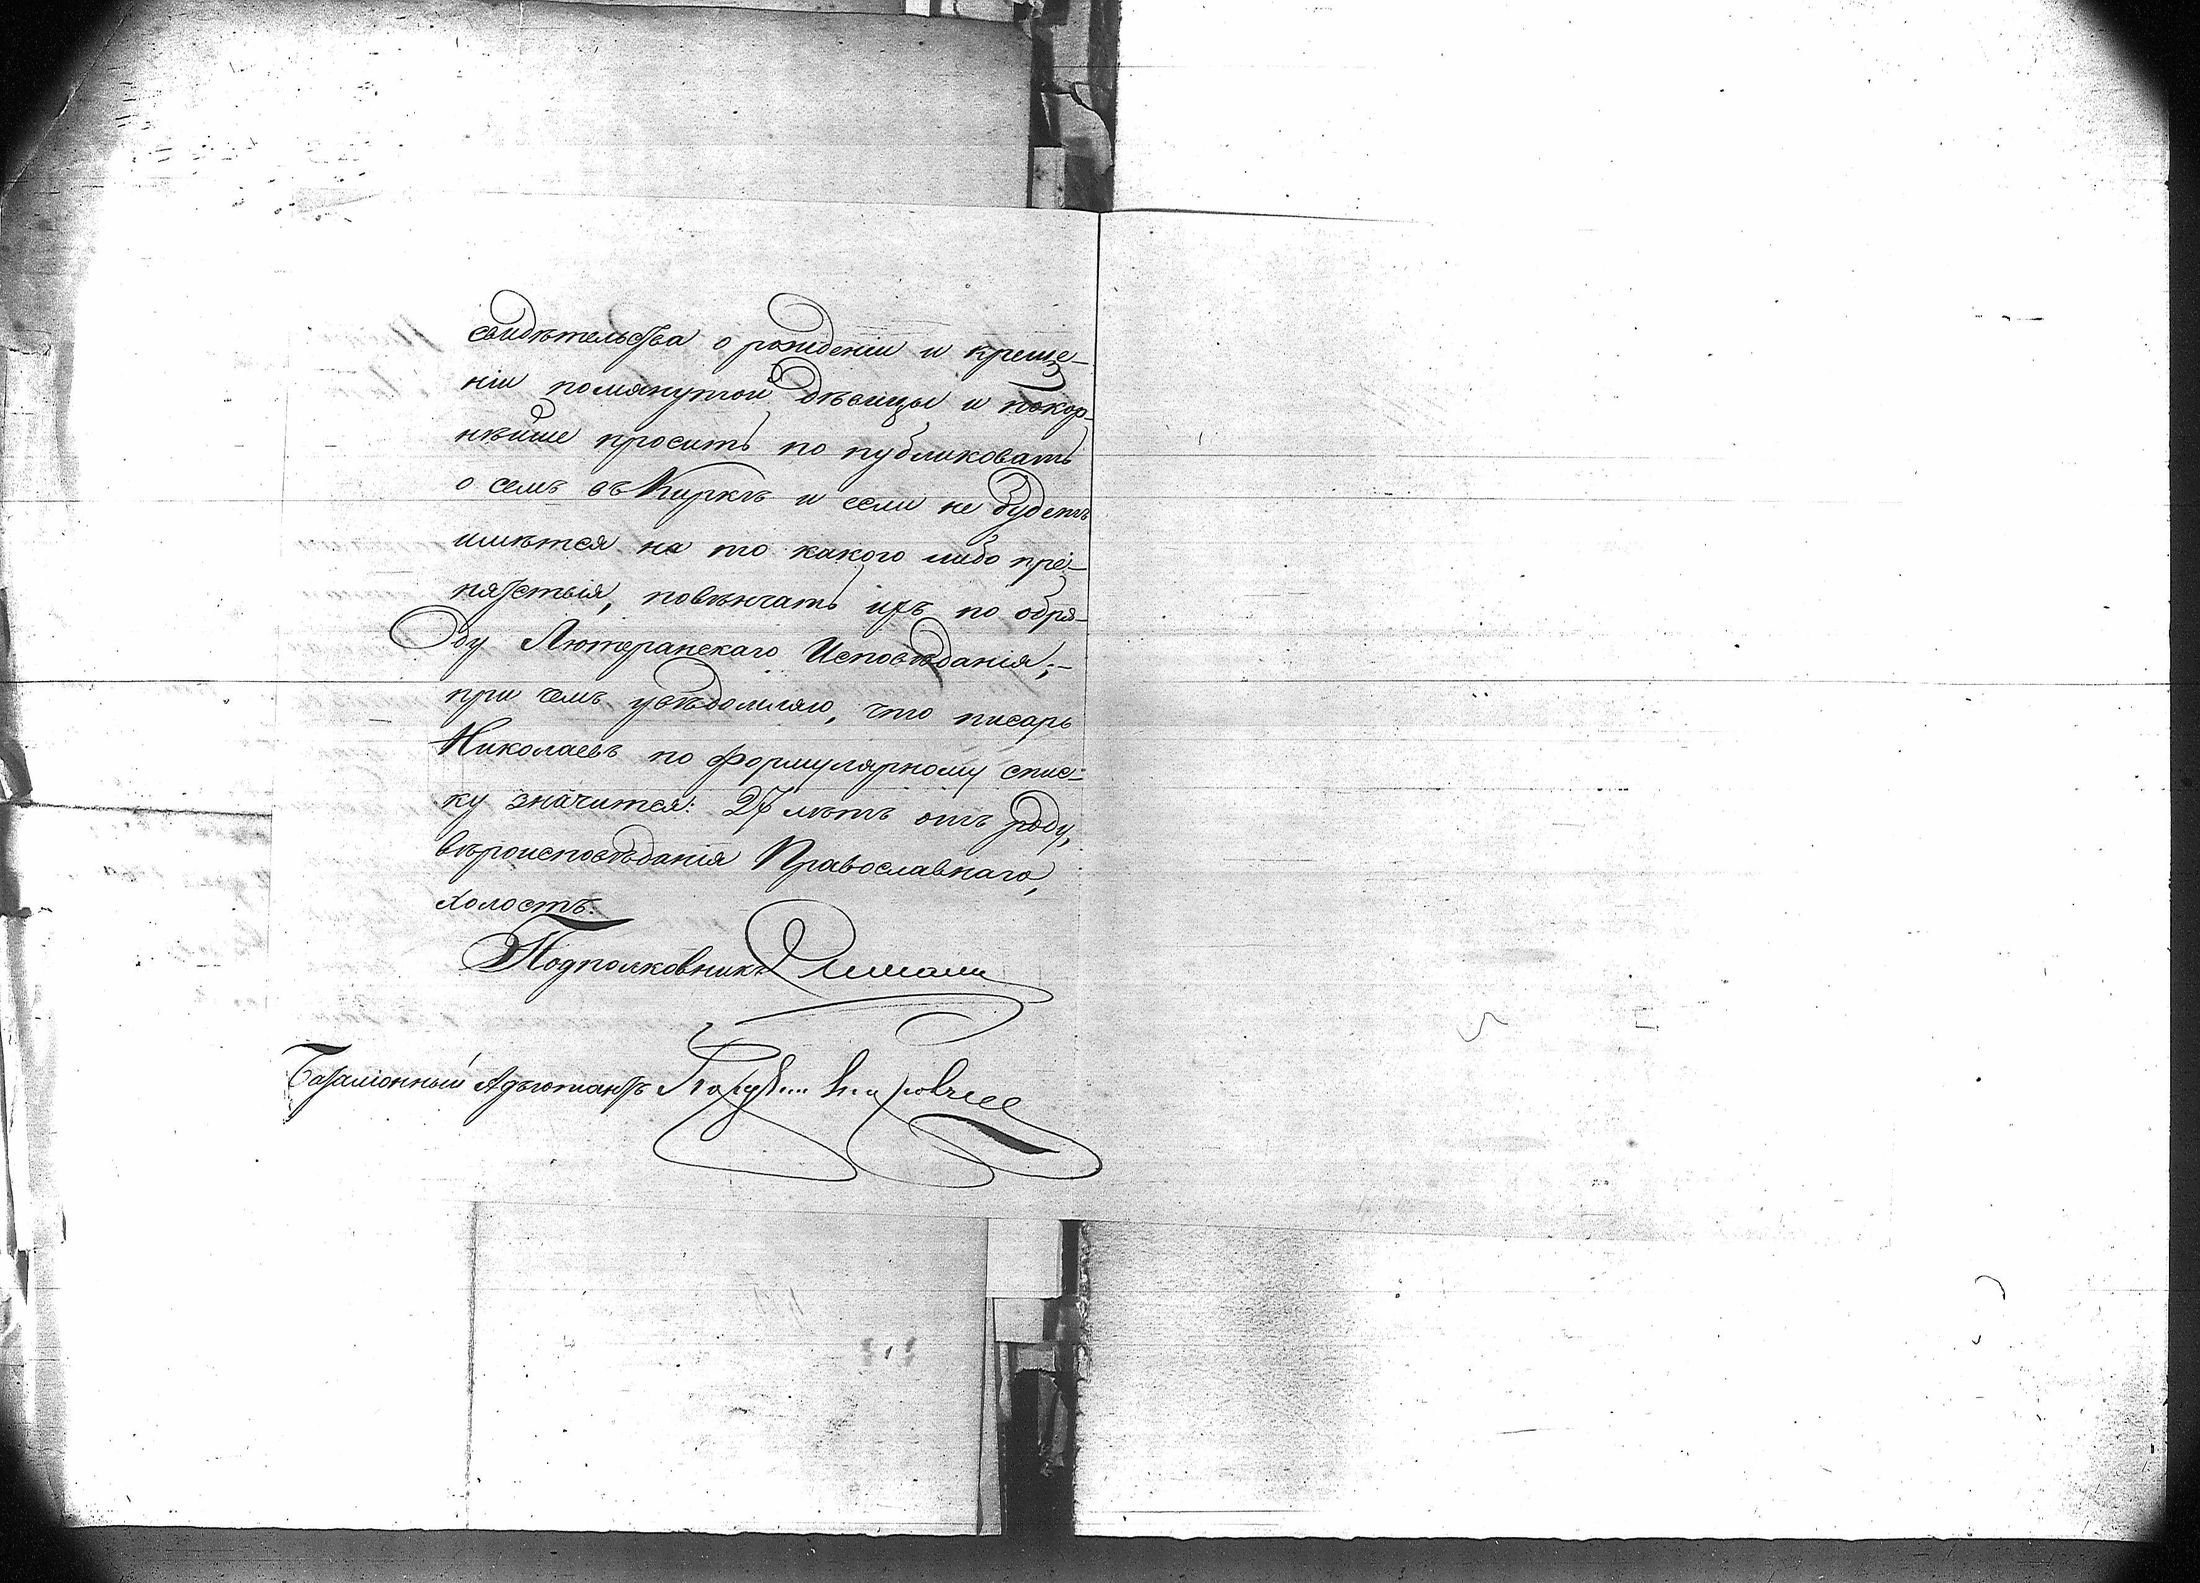 свидѣтельства о рожденіи и креще-
ніи помянутой дѣвицы и покор-
нѣйше просить по публиковать
о семъ въ Киркѣ и если не будетъ
имѣтся на то какого либо пре-
пятствія, повѣнчать ихъ по обря-
ду Лютеранскаго Исповѣданія;-
при чемъ увѣдомляю, что писарь
Николаевъ по формулярному спис-
ку значится: 27 лѣтъ отъ роду,
вѣроисповѣданія Православнаго,
холостъ.
Подполковникъ
Баталіонный Адъютантъ